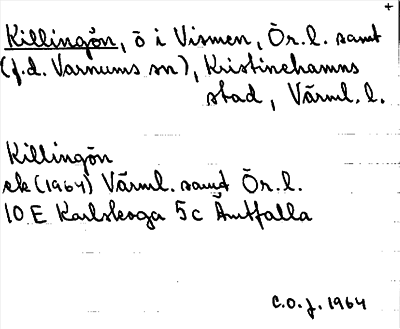 +
Killingön, ö i Vismen, Ör. l. samt
(f.d. Varnums sn), Kristinehamns
stad, Värml. l.
Killingön
ek (1964) Värml. samt Ör. l.
10 E Karlskoga 5c Åmtfalla
C.O.J. 1964